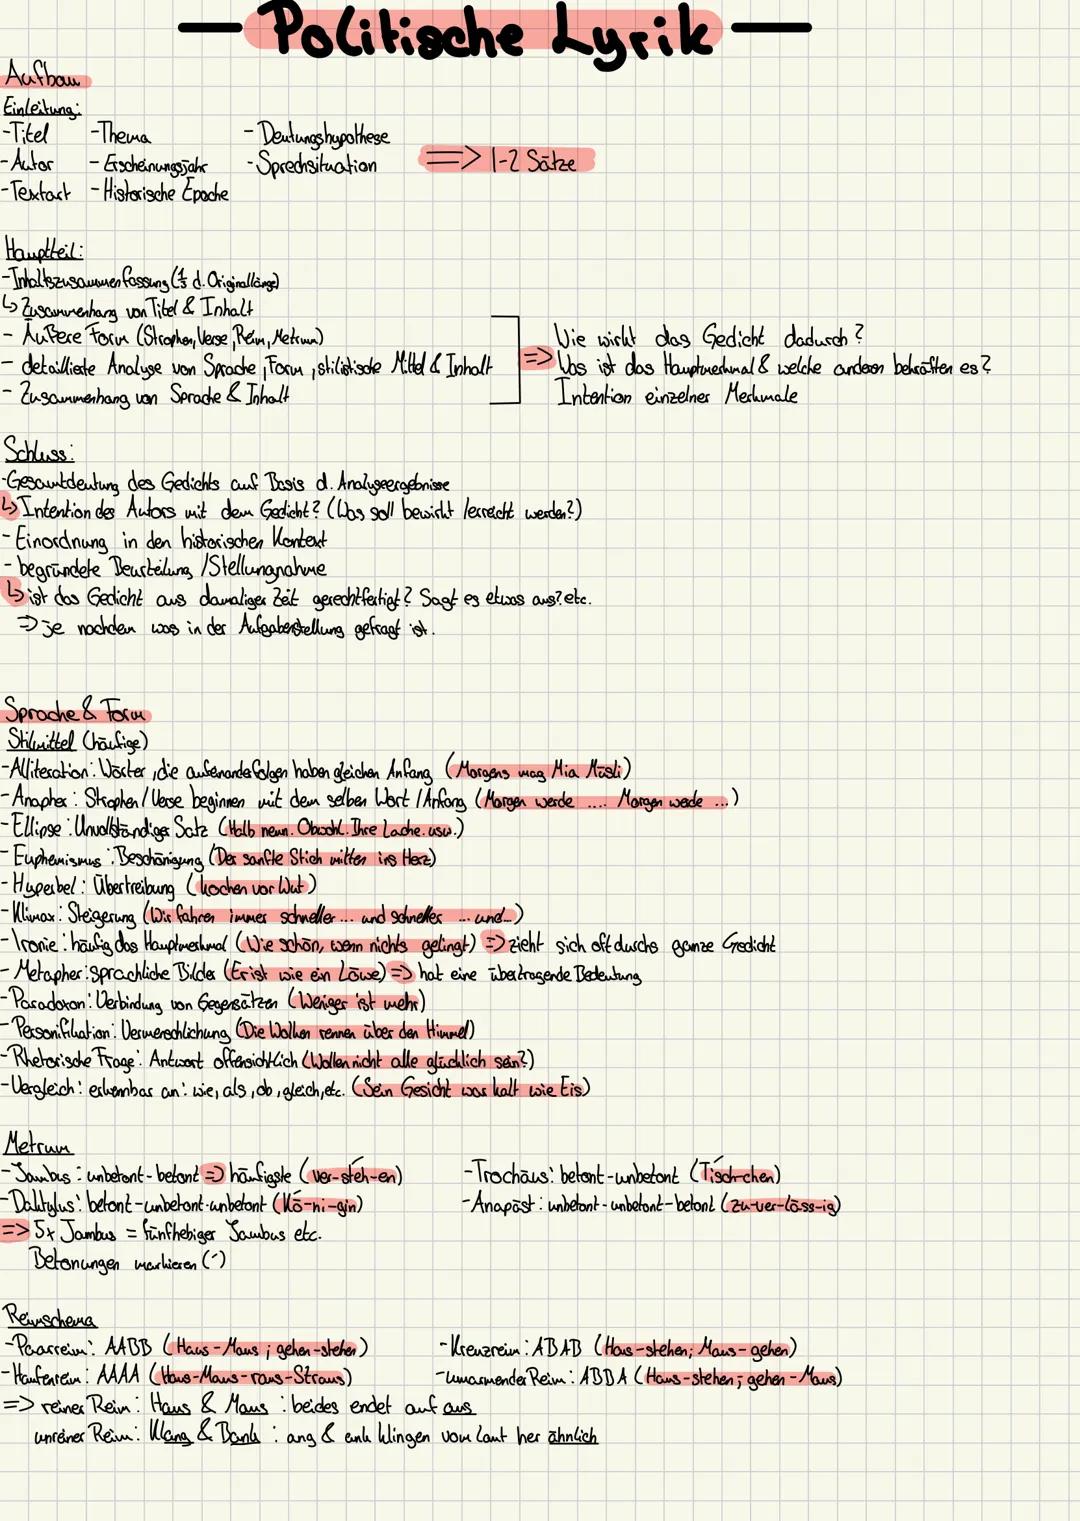 Politische Lyrik
Aufbau
Einleitung:
-Titel -Thema - Deutungshypothese
-Autor - Erscheinungsjahr -Sprechsituation => 1-2 Sätze
-Textart - Historische Epoche
Hauptteil:
-Inhaltszusammenfassung (⅓ d. Originallänge)
↳ Zusammenhang von Titel & Inhalt
- Äußere Form (Strophen, Verse, Reim, Metrum)
- detaillierte Analyse von Sprache, Form, stilistische Mittel & Inhalt
- Zusammenhang von Sprache & Inhalt
Wie wirkt das Gedicht dadurch?
=> Was ist das Hauptmerkmal & welche anderen bekräften es?
Intention einzelner Merkmale
Schluss:
-Gesamtdeutung des Gedichts auf Basis d. Analyseergebnisse
↳ Intention des Autors mit dem Gedicht? (Was soll bewirkt /erreicht werden?)
- Einordnung in den historischen Kontext
- begründete Beurteilung /Stellungnahme
↳ ist das Gedicht aus damaliger Zeit gerechtfertigt? Sagt es etwas aus? etc.
=> je nachdem was in der Aufgabenstellung gefragt ist.
Sprache & Form
Stilmittel (häufige)
-Alliteration: Wörter, die aufeinanderfolgen haben gleichen Anfang (Morgens mag Mia Müsli)
-Anapher: Strophen/Verse beginnen mit dem selben Wort /Anfang (Morgen werde .... Morgen werde ...)
-Ellipse: Unvollständiger Satz (Halb neun. Obwohl. Ihre Lache. usw.)
- Euphemismus: Beschönigung (Der sanfte Stich mitten ins Herz)
-Hyperbel: Übertreibung (kochen vor Wut)
-Klimax: Steigerung (Wir fahren immer schneller ... und schneller ... und...)
-Ironie: häufig das Hauptmerkmal (Wie schön, wenn nichts gelingt) => zieht sich oft durchs ganze Gedicht
- Metapher: sprachliche Bilder (Er ist wie ein Löwe) => hat eine übertragende Bedeutung
-Paradoxon: Verbindung von Gegensätzen (Weniger ist mehr)
-Personifikation: Vermenschlichung (Die Wolken rennen über den Himmel)
-Rhetorische Frage: Antwort offensichtlich (Wollen nicht alle glücklich sein?)
-Vergleich: erkennbar an: wie, als, ob, gleich, etc. (Sein Gesicht war kalt wie Eis)
Metrum
-Jambus: unbetont-betont => häufigste (ver-stéh-en) -Trochäus: betont-unbetont (Tísch-chen)
-Daktylus: betont-unbetont-unbetont (Kö́-ni-gin) -Anapäst: unbetont-unbetont-betont (zu-ver-läss-ig)
=> 5x Jambus = fünfhebiger Jambus etc.
Betonungen markieren (´)
Reimschema
-Paarreim: AABB (Haus-Maus; gehen-stehen) -Kreuzreim: ABAB (Haus-stehen; Maus-gehen)
-Haufenreim: AAAA (Haus-Maus-raus-Straus) -umarmender Reim: ABBA (Haus-stehen; gehen-Maus)
=> reiner Reim: Haus & Maus: beides endet auf aus
unreiner Reim: Klang & Bank: ang & ank klingen vom Laut her ähnlich